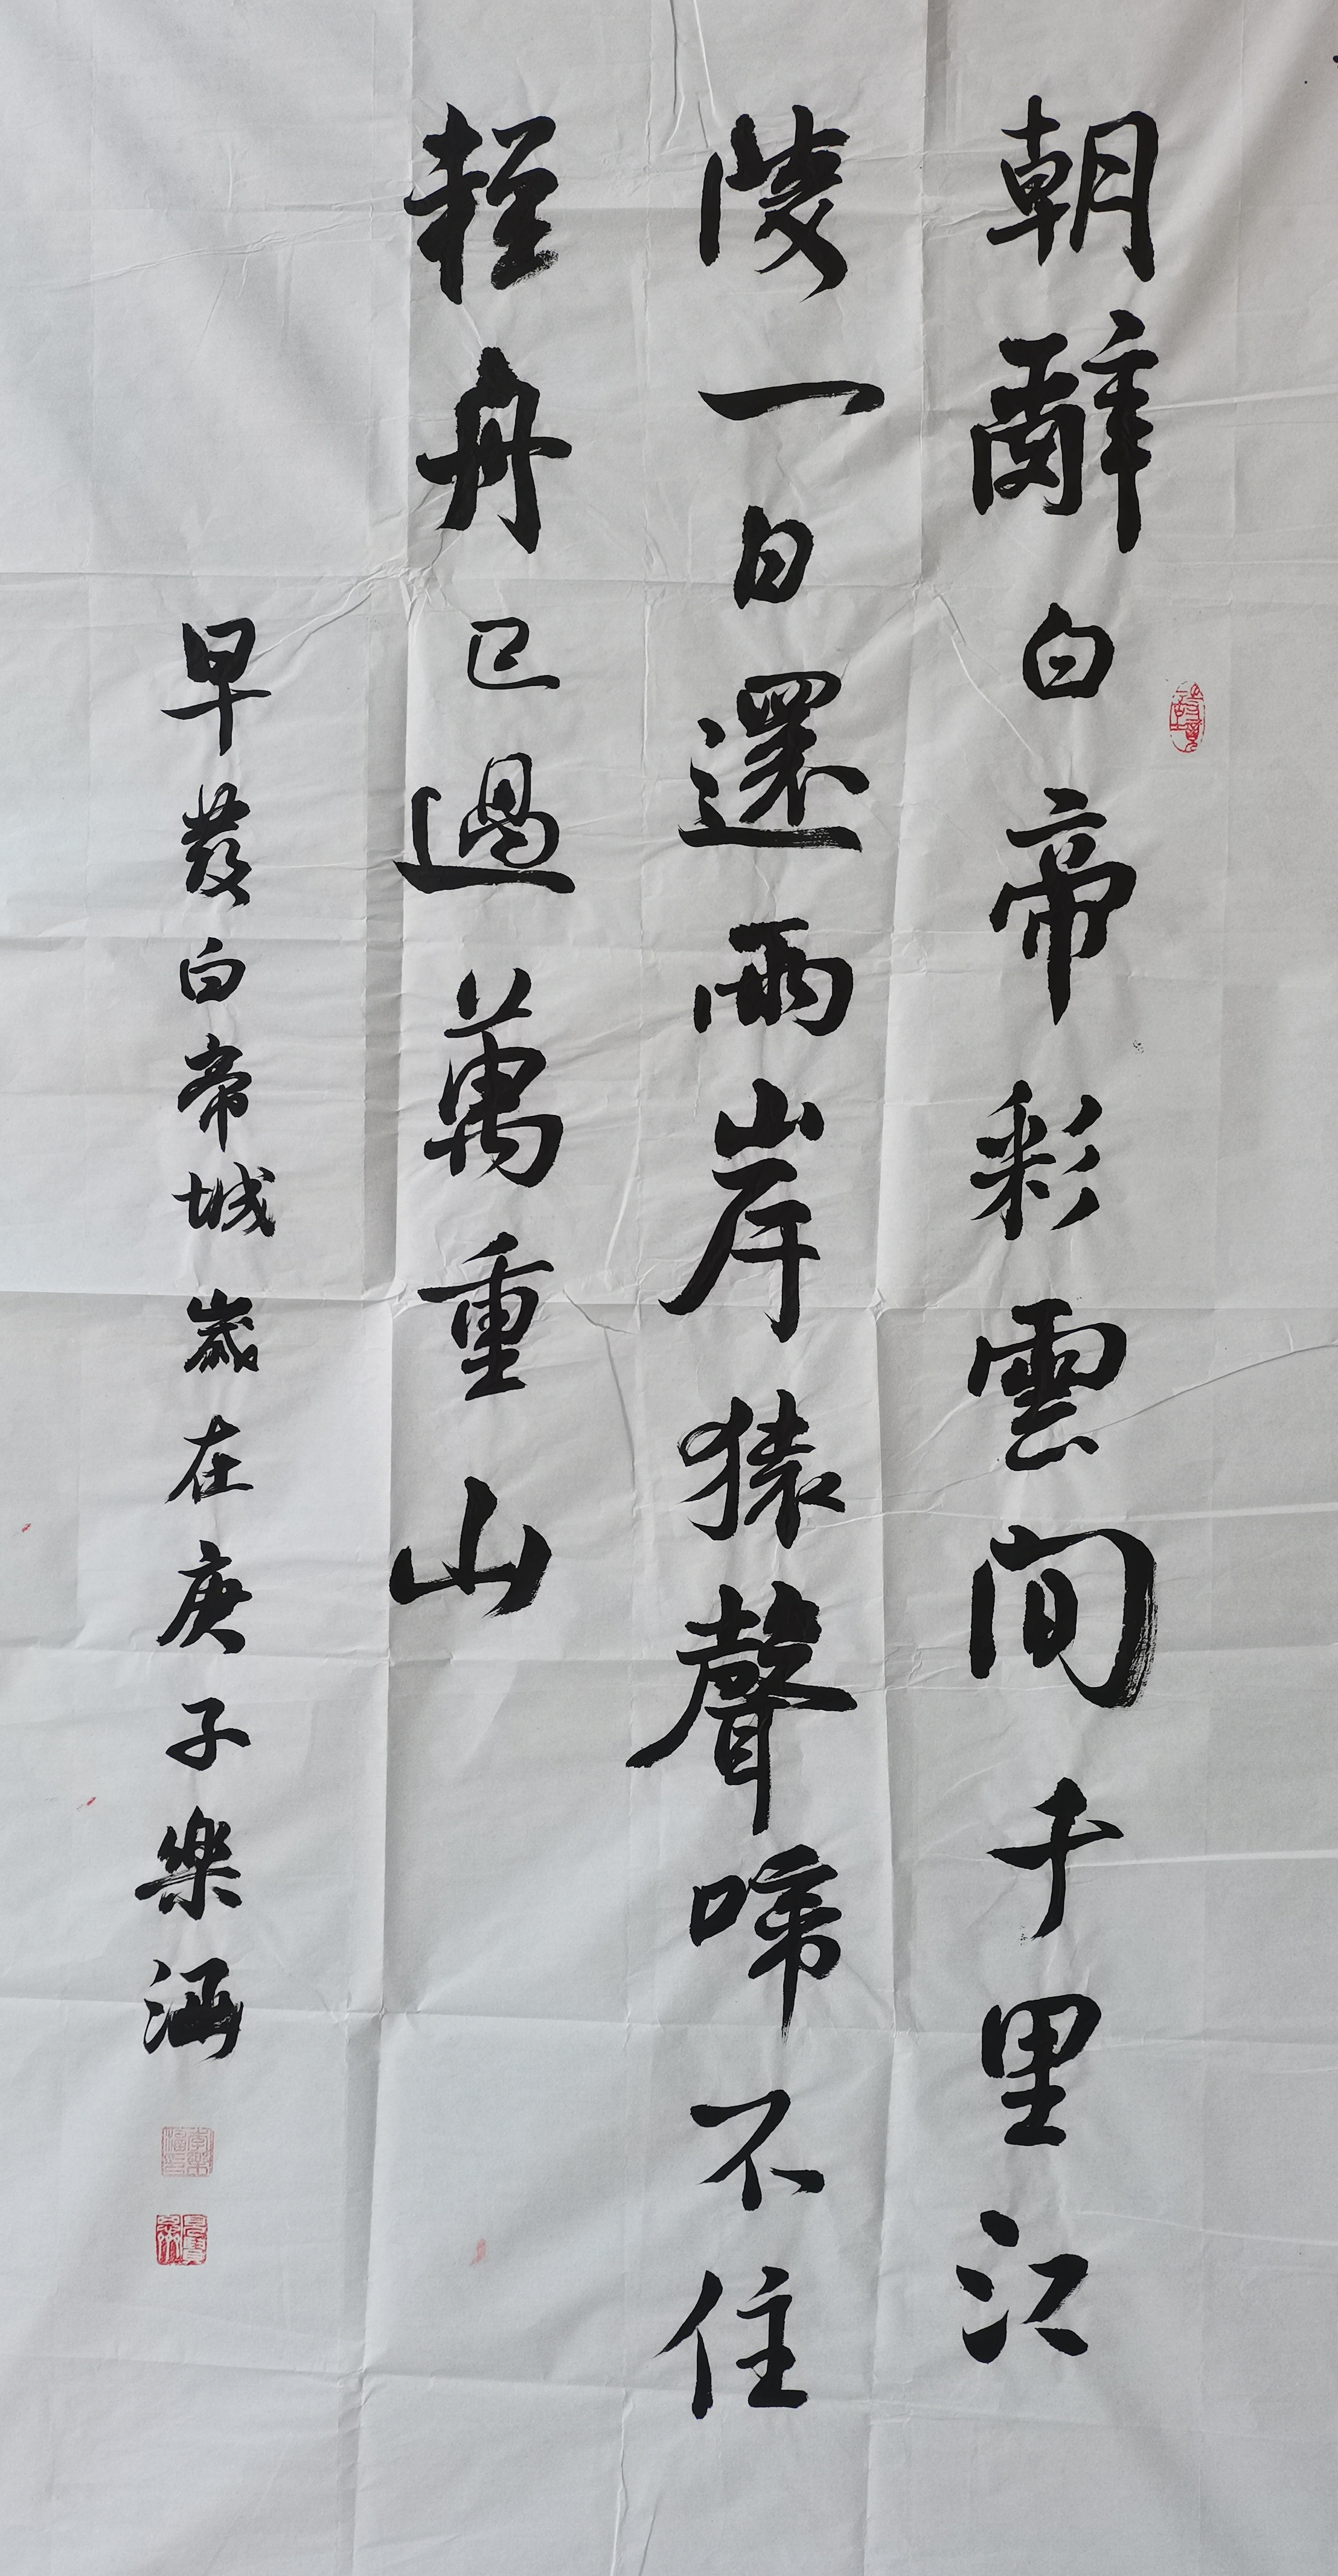 朝辭白帝彩雲間千里江
陵一日還兩岸猿聲啼不住
輕舟已過萬重山
早發白帝城歲在庚子樂涵